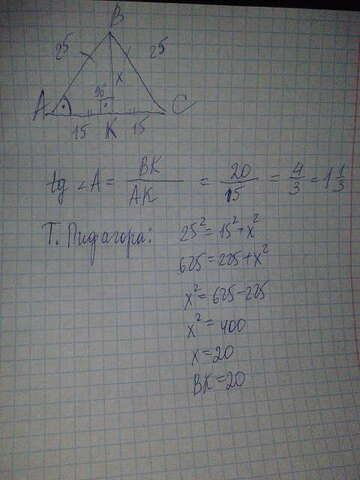 B
25 25
x
90
A C
15 K 15
tg ∠A = BK/AK = 20/15 = 4/3 = 1 1/3
Т. Пифагора: 25² = 15² + x²
625 = 225 + x²
x² = 625 - 225
x² = 400
x = 20
BK = 20